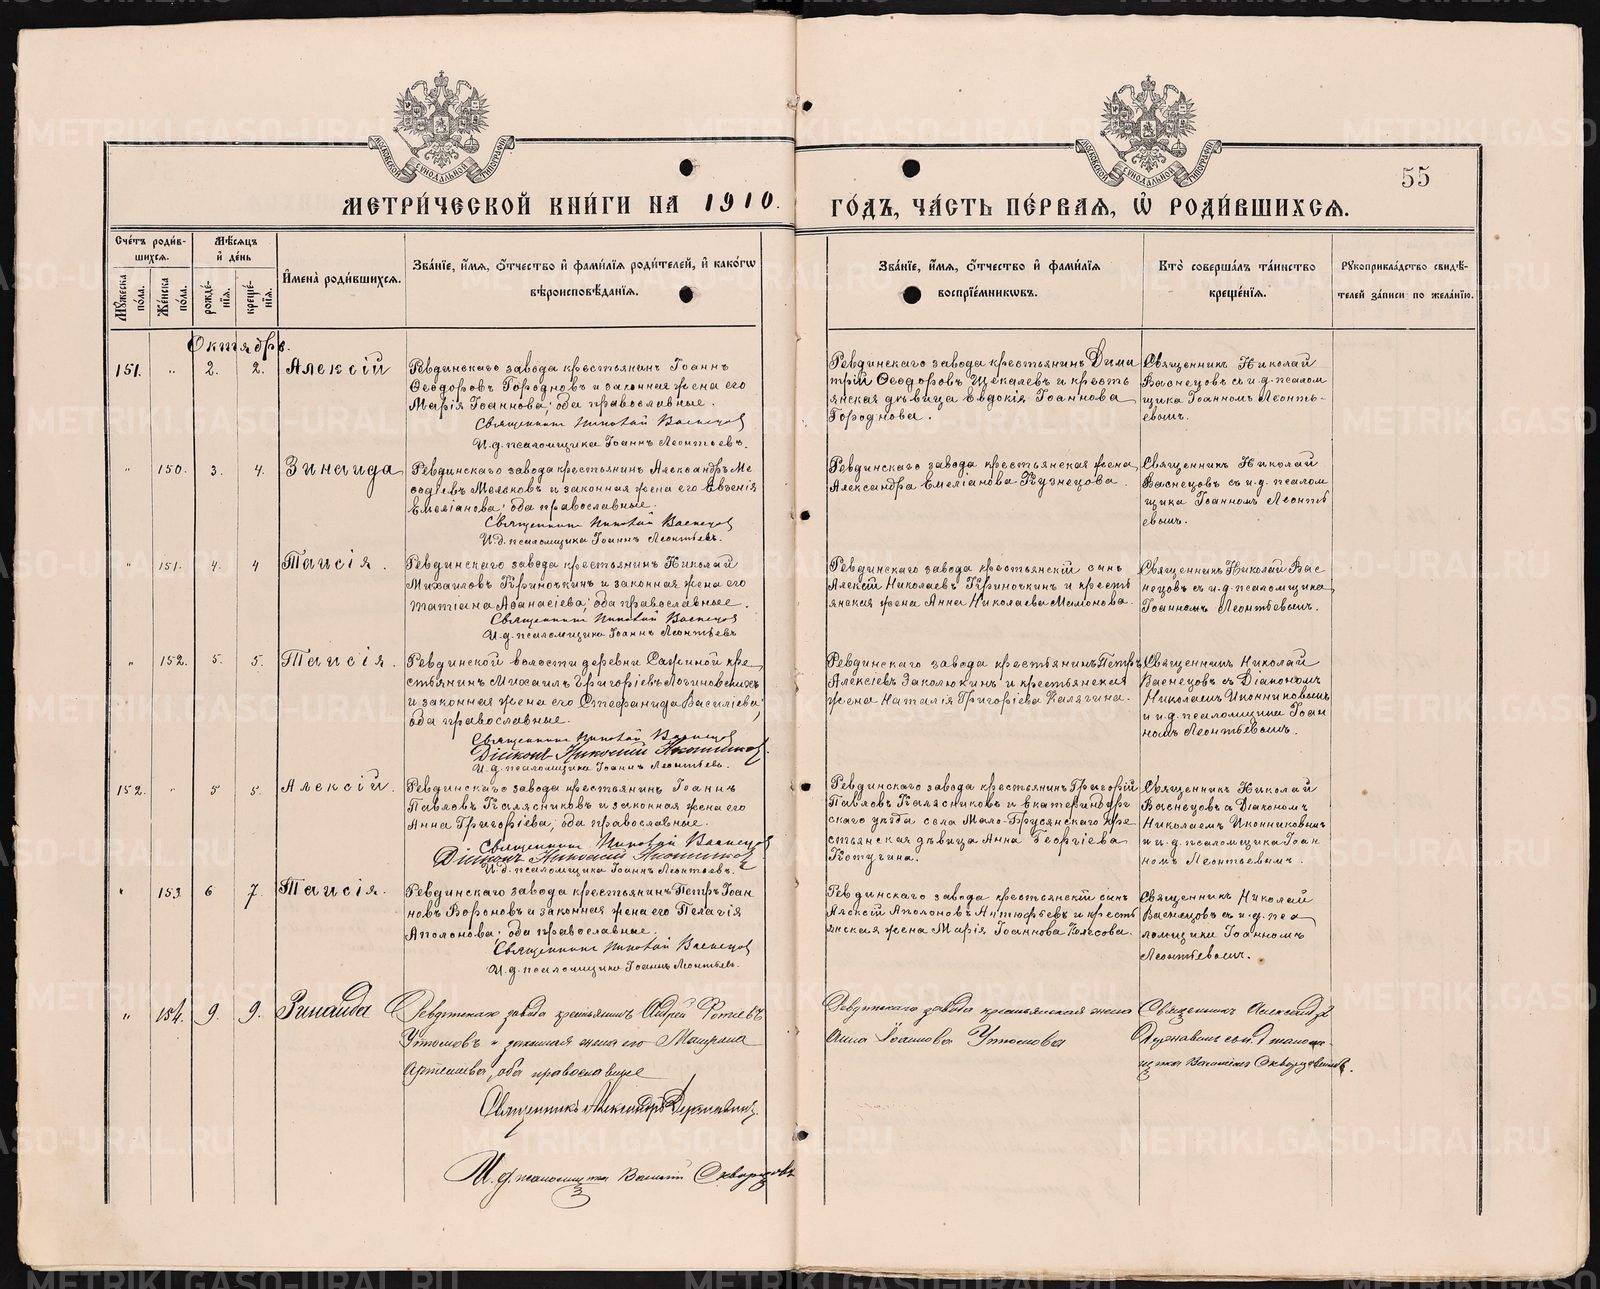 МЕТРИ́ЧЕСКОЙ КНИ́ГИ НА 1910.
ГО́ДЪ, ЧА́СТЬ ПЕ́РВАѦ, Ѡ҆ РОДИ́ВШИХСѦ.
55
Сче́тъ роди́в-
шихсѧ.
Мꙋ́жеска
по́ла.
Же́нска
по́ла.
Мѣ́сѧцъ
и҆ де́нь
рожде́-
нїѧ.
креще́-
нїѧ.
И҆мена̀ роди́вшихсѧ.
Зва́нїе, и҆́мѧ, ѻ҆́тчество и҆ фами́лїѧ роди́телей, и҆ како́гѡ
вѣроисповѣ́данїѧ.
Зва́нїе, и҆́мѧ, ѻ҆́тчество и҆ фами́лїѧ
воспрїе́мникѡвъ.
Кто̀ соверша́лъ та́инство
креще́нїѧ.
Рꙋкоприкла́дство свидѣ́-
телей за́писи по жела́нїю.
Октябрь.
151. " 2. 2. Алексій
Ревдинскаго завода крестьянинъ Іоаннъ
Ѳеодоровъ Городновъ и законная жена его
Марія Іоаннова; оба православные.
Священникъ Николай Васнецов
И.д. псаломщика Іоаннъ Леонтьевъ.
Ревдинскаго завода крестьянинъ Дими
трій Ѳеодоровъ Щекалевъ и кресть
янская дѣвица Евдокія Іоаннова
Городнова.
Священникъ Николай
Васнецовъ съ и.д. псалом
щика Іоанномъ Леонть-
евымъ.
" 150. 3. 4. Зинаида
Ревдинскаго завода крестьянинъ Александръ Ме
ѳодіевъ и законная жена его Евгенія
Емеліанова; оба православные.
Священникъ Николай Васнецов
И.д. псаломщика Іоаннъ Леонтьевъ.
Ревдинскаго завода крестьянская жена
Александра Емеліанова Кузнецова.
Священникъ Николай
Васнецовъ съ и.д. псалом
щика Іоанномъ Леонть
евымъ.
" 151. 4. 4 Таисія.
Ревдинскаго завода крестьянинъ Николай
Михаиловъ Криночкинъ и законная жена его
Татіана Аѳанасіева; оба православные.
Священникъ Николай Васнецов
И.д. псаломщика Іоаннъ Леонтьевъ
Ревдинскаго завода крестьянскій сынъ
Алексій Николаевъ Криночкинъ и кресть
янская жена Анна Николаева Мамонова.
Священникъ Николай Вас
нецовъ съ и.д. псаломщика
Іоанномъ Леонтьевымъ.
" 152. 5. 5. Таисія.
Ревдинской волости деревни Сажиной кре
стьянинъ Михаилъ Григоріевъ Логиновскихъ
и законная жена его Стефанида Василіева;
оба православные.
Священникъ Николай Васнецов
Діаконъ Николай Иконников.
И.д. псаломщика Іоаннъ Леонтьевъ.
Ревдинскаго завода крестьянинъ Петръ
Алексіевъ Заколюкинъ и крестьянская
жена Наталія Григоріева Калягина.
Священникъ Николай
Васнецовъ съ Діакономъ
Николаемъ Иконниковымъ
и и.д. псаломщика Іоан
номъ Леонтьевымъ.
152. " 5 5. Алексій.
Ревдинскаго завода крестьянинъ Іоаннъ
Павловъ Калясниковъ и законная жена его
Анна Григоріева; оба православные.
Священникъ Николай Васнецов
Діаконъ Николай Иконников
И.д. псаломщика Іоаннъ Леонтьевъ.
Ревдинскаго завода крестьянинъ Григорій
Павловъ Калясниковъ и екатеринбург
скаго уѣзда села Мало-Брусянскаго кре
стьянская дѣвица Анна Георгіева
Котугина.
Священникъ Николай
Васнецовъ съ Діакономъ
Николаемъ Иконниковымъ
и и.д. псаломщика Іоан
номъ Леонтьевымъ.
" 153. 6 7. Таисія.
Ревдинскаго завода крестьянинъ Петръ Іоан
новъ Вороновъ и законная жена его Пелагія
Аполонова; оба православные.
Священникъ Николай Васнецов
И.д. псаломщика Іоаннъ Леонтьевъ.
Ревдинскаго завода крестьянскій сынъ
Алексій Аполоновъ Антюфьевъ и кресть
янская жена Марія Іоаннова Колесова.
Священникъ Николай
Васнецовъ съ и.д. пса
ломщика Іоанномъ
Леонтьевымъ.
" 154. 9. 9. Зинаида
Ревдинскаго завода крестьянинъ Андрей Фотіевъ
Утюмовъ и законная жена его Матрона
Артемьева, оба православные
Священникъ Александръ Державинъ.
И.д. псаломщика Василій Скворцовъ
Ревдинскаго завода крестьянская жена
Анна Іоаннова Утюмова
Священникъ Александръ
Державинъ съ и.д. псалом-
щика Василіемъ Скворцовымъ.